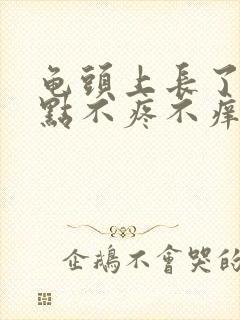 龟頭上長了
點不疼不痒
企鵝不會哭的